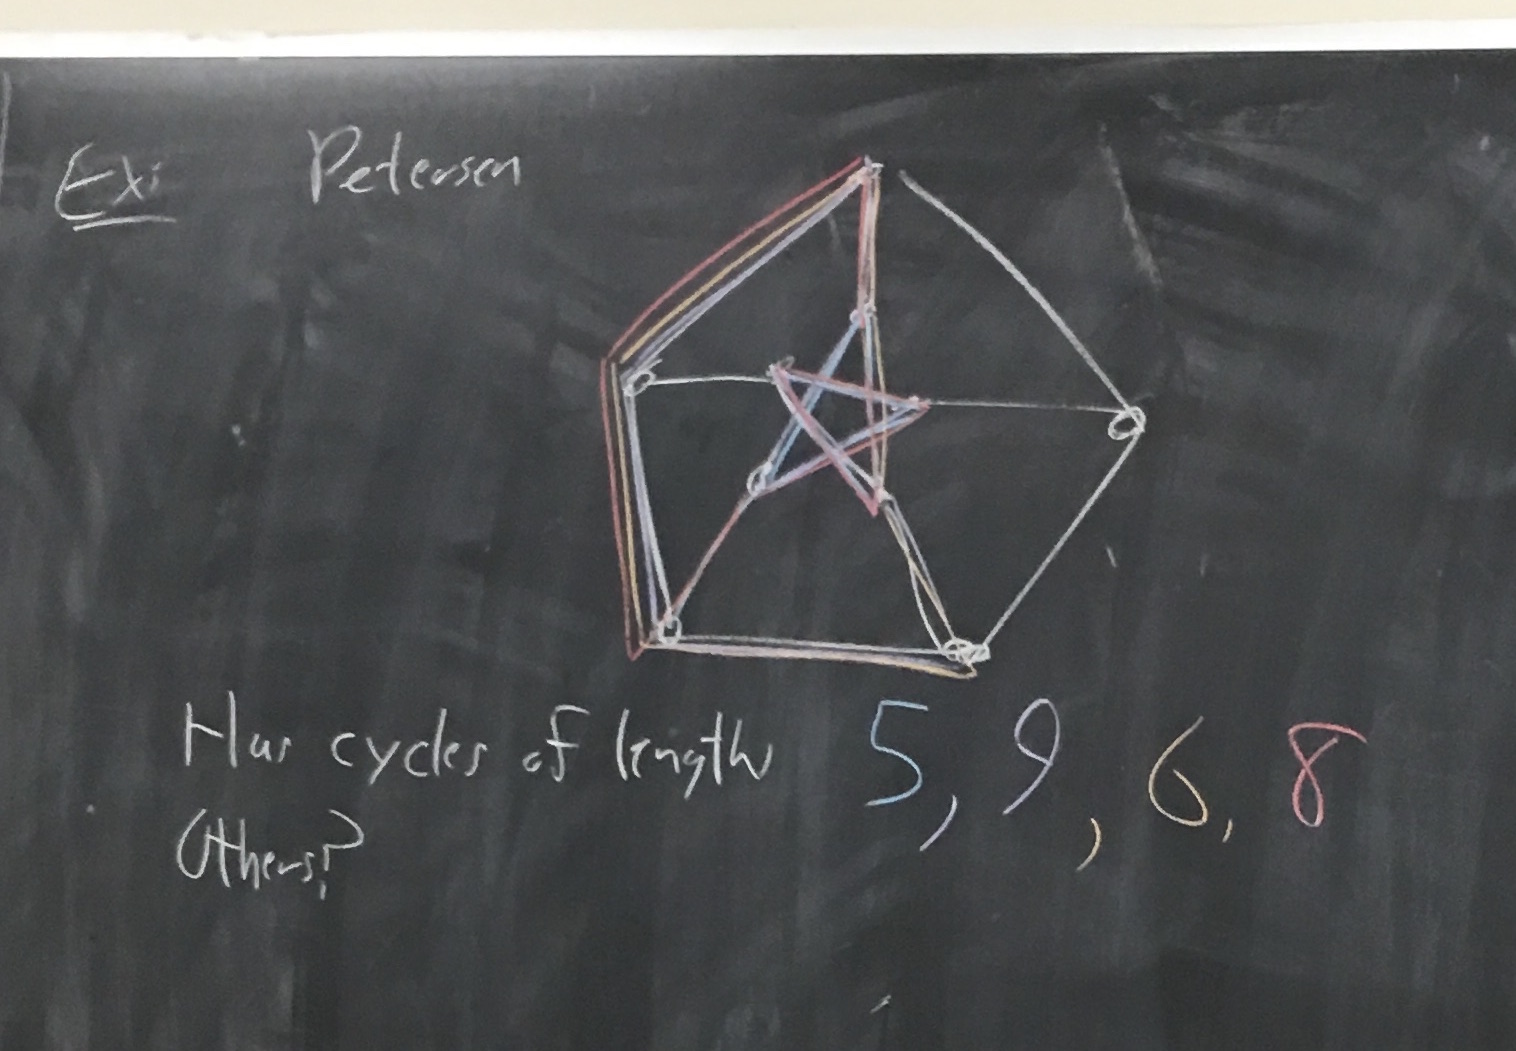 Ex: Petersen
Has cycles of length 5, 9, 6, 8
Others?